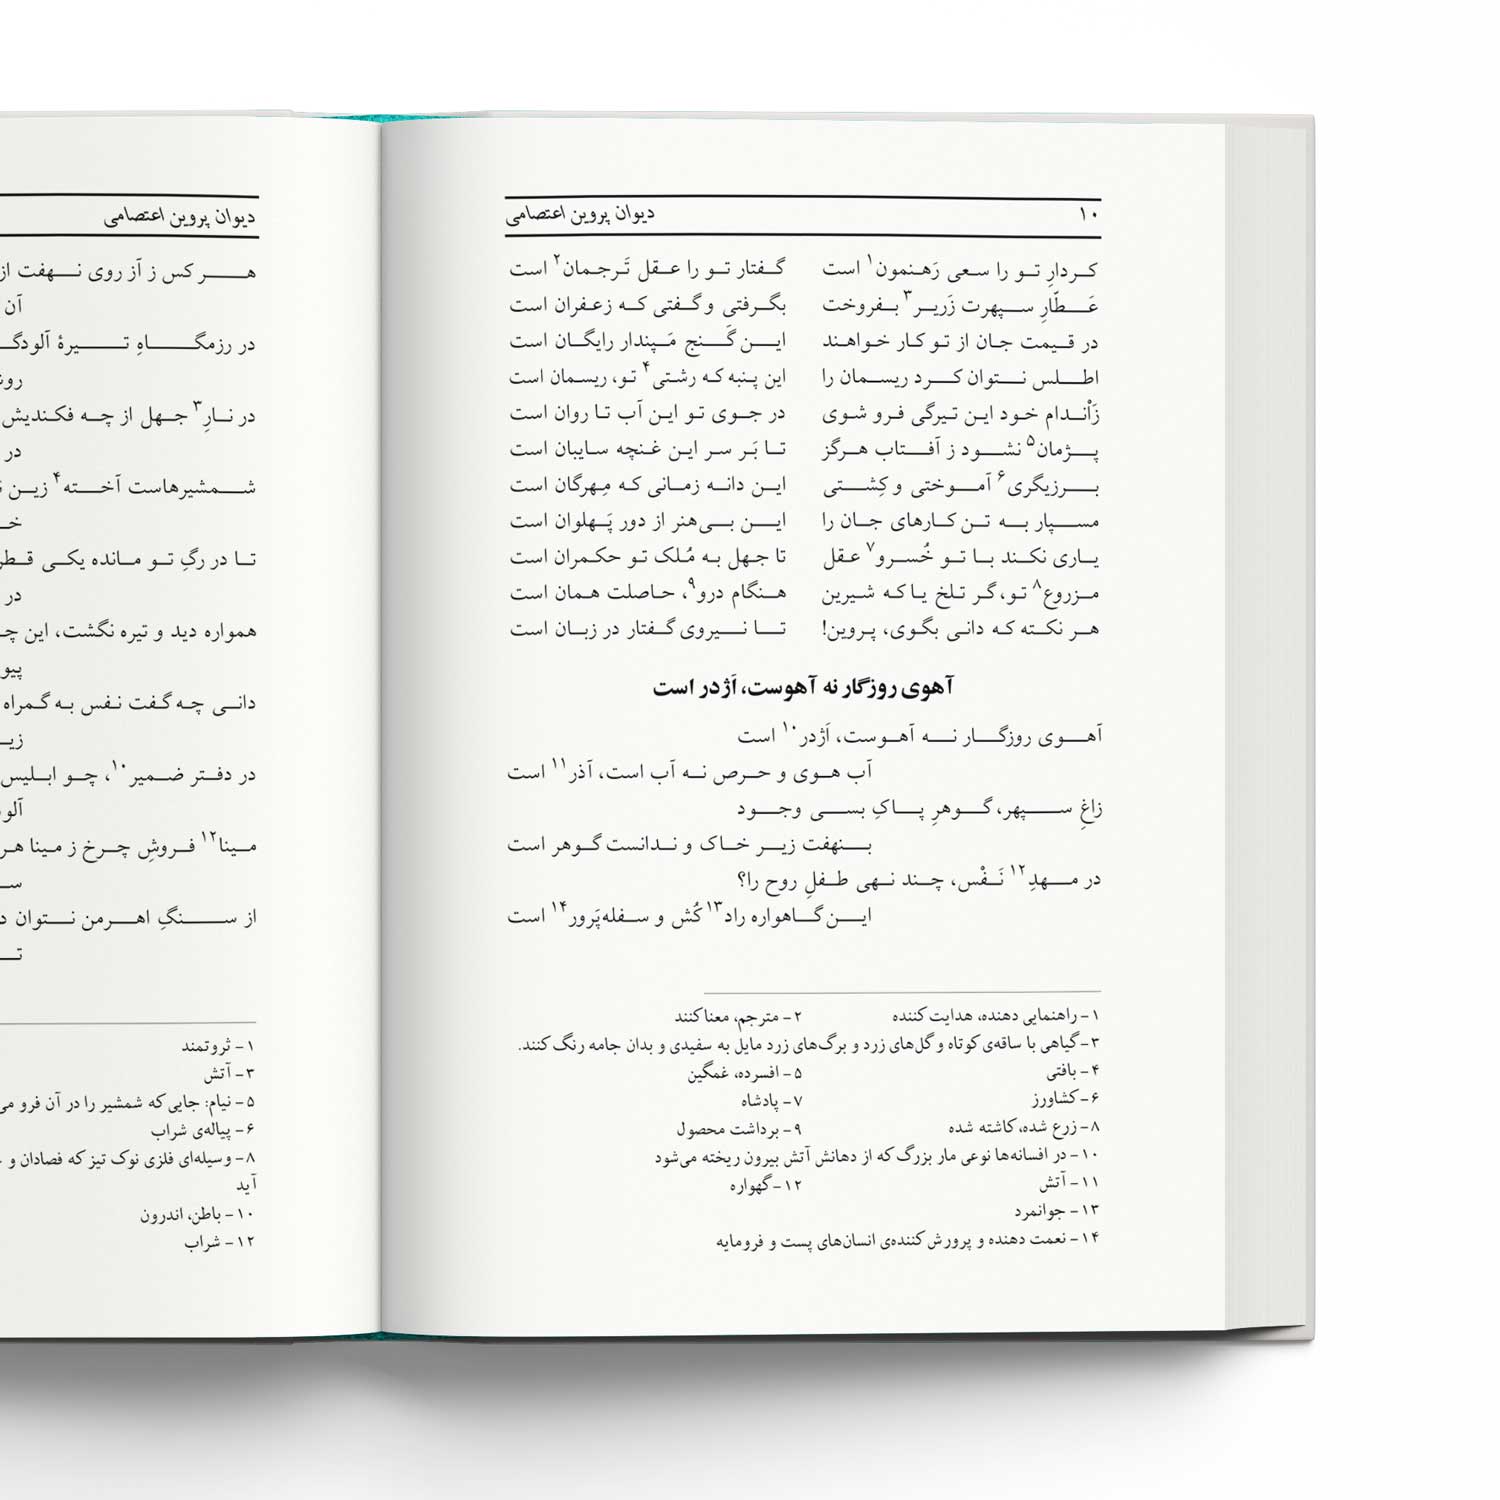 ۱۰ دیوان پروین اعتصامی
کردارِ تو را سعی رَهنمون۱ است گفتار تو را عقل تَرجمان۲ است
عَطّارِ سپهرت زَریر۳ بفروخت بگرفتی و گفتی که زعفران است
در قیمت جان از تو کار خواهند این گَنج مَپندار رایگان است
اطلس نتوان کرد ریسمان را این پنبه که رشتی۴ تو، ریسمان است
زَاْندام خود این تیرگی فرو شوی در جوی تو این آب تا روان است
پژمان۵ نشود ز آفتاب هرگز تا بَر سر این غنچه سایبان است
برزیگری۶ آموختی و کِشتی این دانه زمانی که مِهرگان است
مسپار به تن کارهای جان را این بی‌هنر از دور پَهلوان است
یاری نکند با تو خُسرو۷ عقل تا جهل به مُلک تو حکمران است
مزروع۸ تو، گر تلخ یا که شیرین هنگام درو۹، حاصلت همان است
هر نکته که دانی بگوی، پروین! تا نیروی گفتار در زبان است
آهوی روزگار نه آهوست، اَژدر است
آهوی روزگار نه آهوست، اَژدر۱۰ است
آب هوی و حرص نه آب است، آذر۱۱ است
زاغِ سپهر، گوهرِ پاکِ بسی وجود
بنهفت زیر خاک و ندانست گوهر است
در مهدِ۱۲ نَفْس، چند نهی طفلِ روح را؟
این گاهواره راد۱۳ کُش و سفله‌پَرور۱۴ است
۱- راهنمایی دهنده، هدایت کننده ۲- مترجم، معنا کنند
۳- گیاهی با ساقه‌ی کوتاه و گل‌های زرد و برگ‌های زرد مایل به سفیدی و بدان جامه رنگ کنند.
۴- بافتی ۵- افسرده، غمگین
۶- کشاورز ۷- پادشاه
۸- زرع شده، کاشته شده ۹- برداشت محصول
۱۰- در افسانه‌ها نوعی مار بزرگ که از دهانش آتش بیرون ریخته می‌شود
۱۱- آتش ۱۲- گهواره
۱۳- جوانمرد
۱۴- نعمت دهنده و پرورش کننده‌ی انسان‌های پست و فرومایه
دیوان پروین اعتصامی
هر کس ز آز روی نهفت از
آن
در رزمگاهِ تیرهٔ
در نارِ۳ جهل از چه فکندیش
در
شمشیرهاست آخته۴ زین
تا در رگِ تو مانده یکی
در
همواره دید و تیره نگشت، این
دانی چه گفت نفس به گمراه
در دفتر ضمیر۱۰، چو ابلیس
مینا۱۲ فروشِ چرخ ز مینا
از سنگِ اهرمن نتوان
۱- ثروتمند
۳- آتش
۵- نیام: جایی که شمشیر را در آن فرو
۶- پیاله‌ی شراب
۸- وسیله‌ای فلزی نوک تیز که فصادان و
آید
۱۰- باطن، اندرون
۱۲- شراب